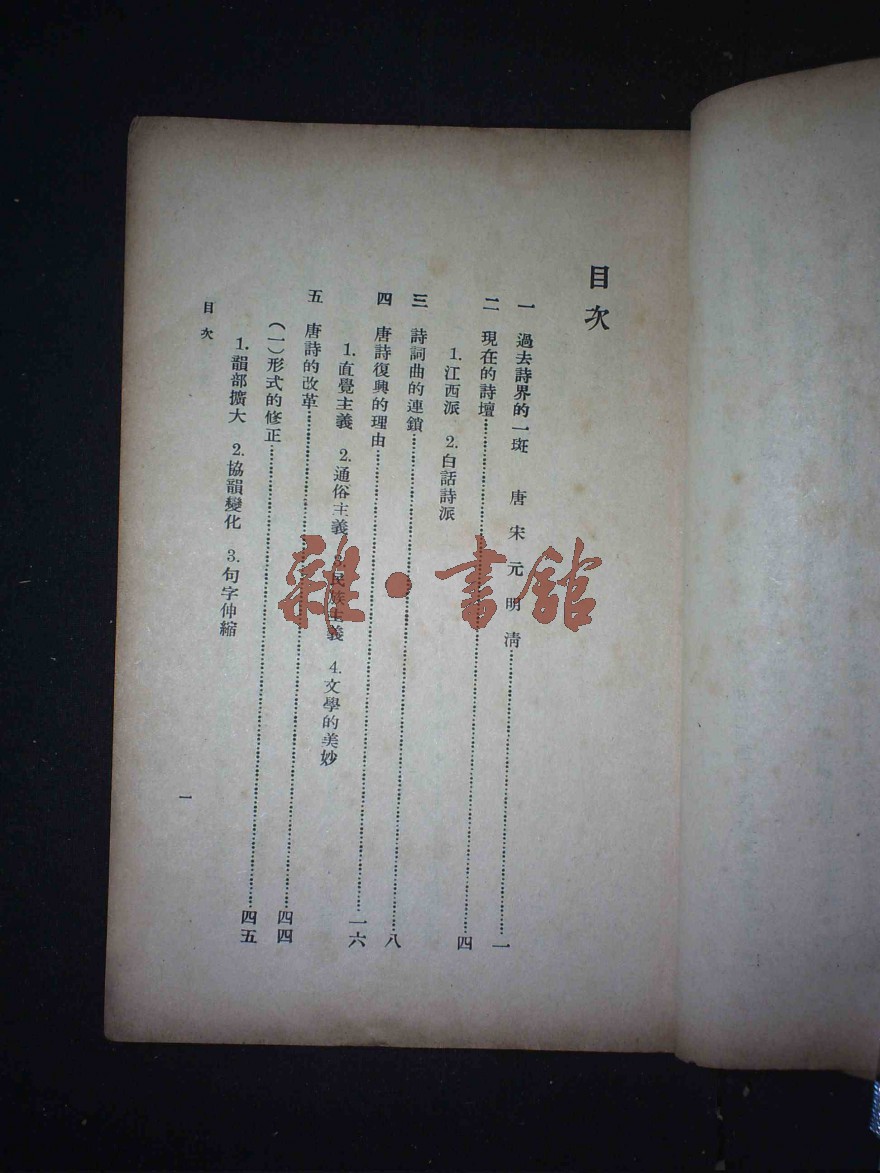 目次
一 過去詩界的一斑 唐宋元明淸……………一
二 現在的詩壇……………四
1.江西派 2.白話詩派
三 詩詞曲的連鎖……………八
四 唐詩復興的理由……………一六
1.直覺主義 2.通俗主義 3.民族主義 4.文學的美妙
五 唐詩的改革……………四四
(一)形式的修正……………四五
1.韻部擴大 2.協韻變化 3.句字伸縮
目次
一
雜·書館